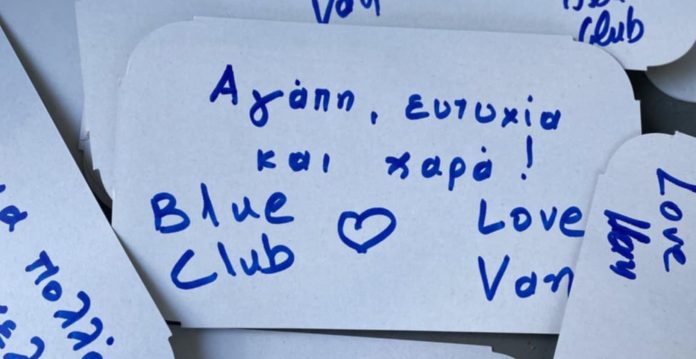 Van
Club
Αγάπη, ευτυχία
και χαρά!
Blue Love
Club Van
Love
Van
πολλ